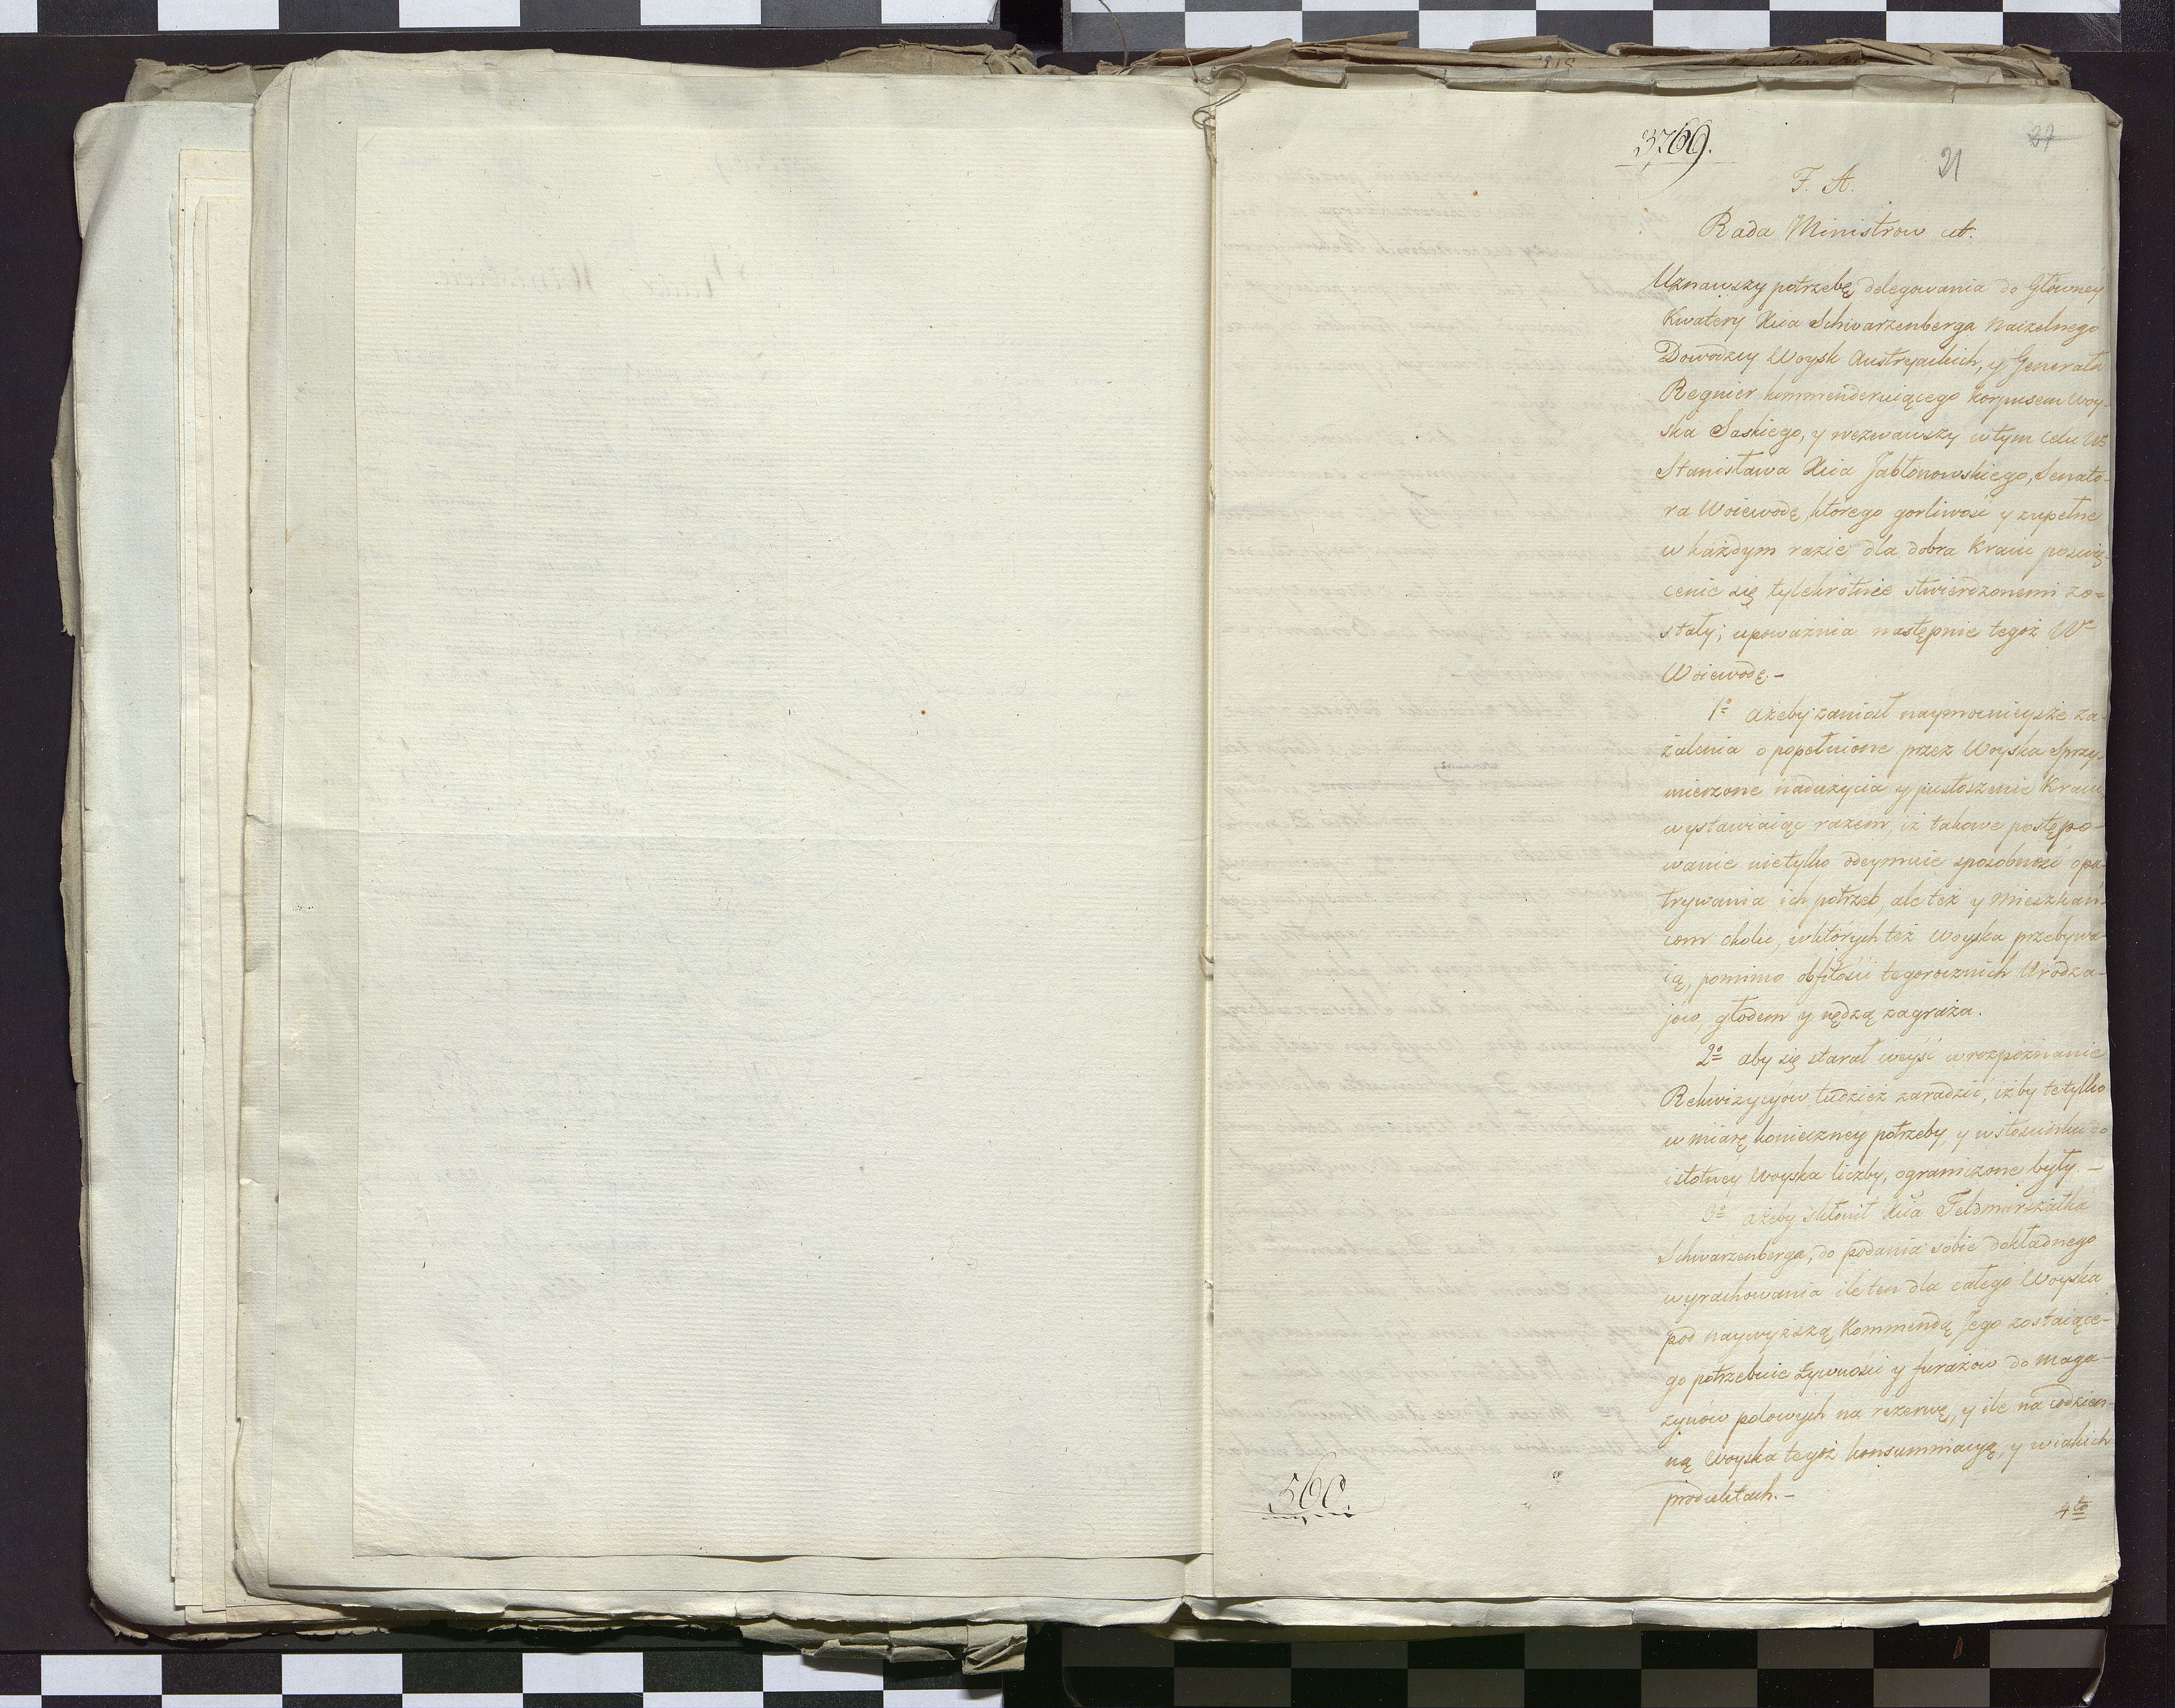 3769.
37
21
F. A.
Rada Ministrow etc.
Uznawszy potrzebę delegowania do Główney
Kwatery Xcia Schwarzenberga Naczelnego
Dowodzcy Woysk Austryackich, y Generała
Regnier kommenderuiącego korpusem Woy-
ska Saskiego, y wezwawszy w tym celu
Stanisława Xcia Jabłonowskiego, Senato-
ra Woiewodę, którego gorliwość y zupełne
w każdym razie dla dobra Kraiu poswię-
cenie się tylekrotnie stwierdzonemi zo-
stały; upoważnia następnie tegoż W
Woiewodę.-
1º ażeby zaniosł naymocnieysze za-
żalenia o popełnione przez Woyska Sprzy-
mierzone nadużycia y pustoszenie Kraiu,
wystawiaiąc razem, iż takowe postępo-
wanie nietylko odeymuie sposobność opa-
trywania ich potrzeb, ale też y Mieszkań-
com okolic, w których też Woyska przebywa-
ią, pomimo obfitości tegorocznich Urodza-
jów, głodem y nędzą zagraża.
2º aby się starał weyść w rozpoznanie
Rekwizycyów, tudzież zaradzić, iżby te tylko
w miarę konieczney potrzeby, y w stosunku do
istotney Woyska liczby, ograniczone były.-
3º ażeby skłonił Xcia Feldmarszałka
Schwarzenberga, do podania sobie dokładnego
wyrachowania ile ten dla całego Woyska
pod naywyższą Kommendą Jego zostaiące-
go potrzebuie żywności y furażów do maga-
zynów polowych na rezerwę, y ile na codzien-
ną Woyska tegoż konsummacyę, y w iakich
produktach.-
560.
4to